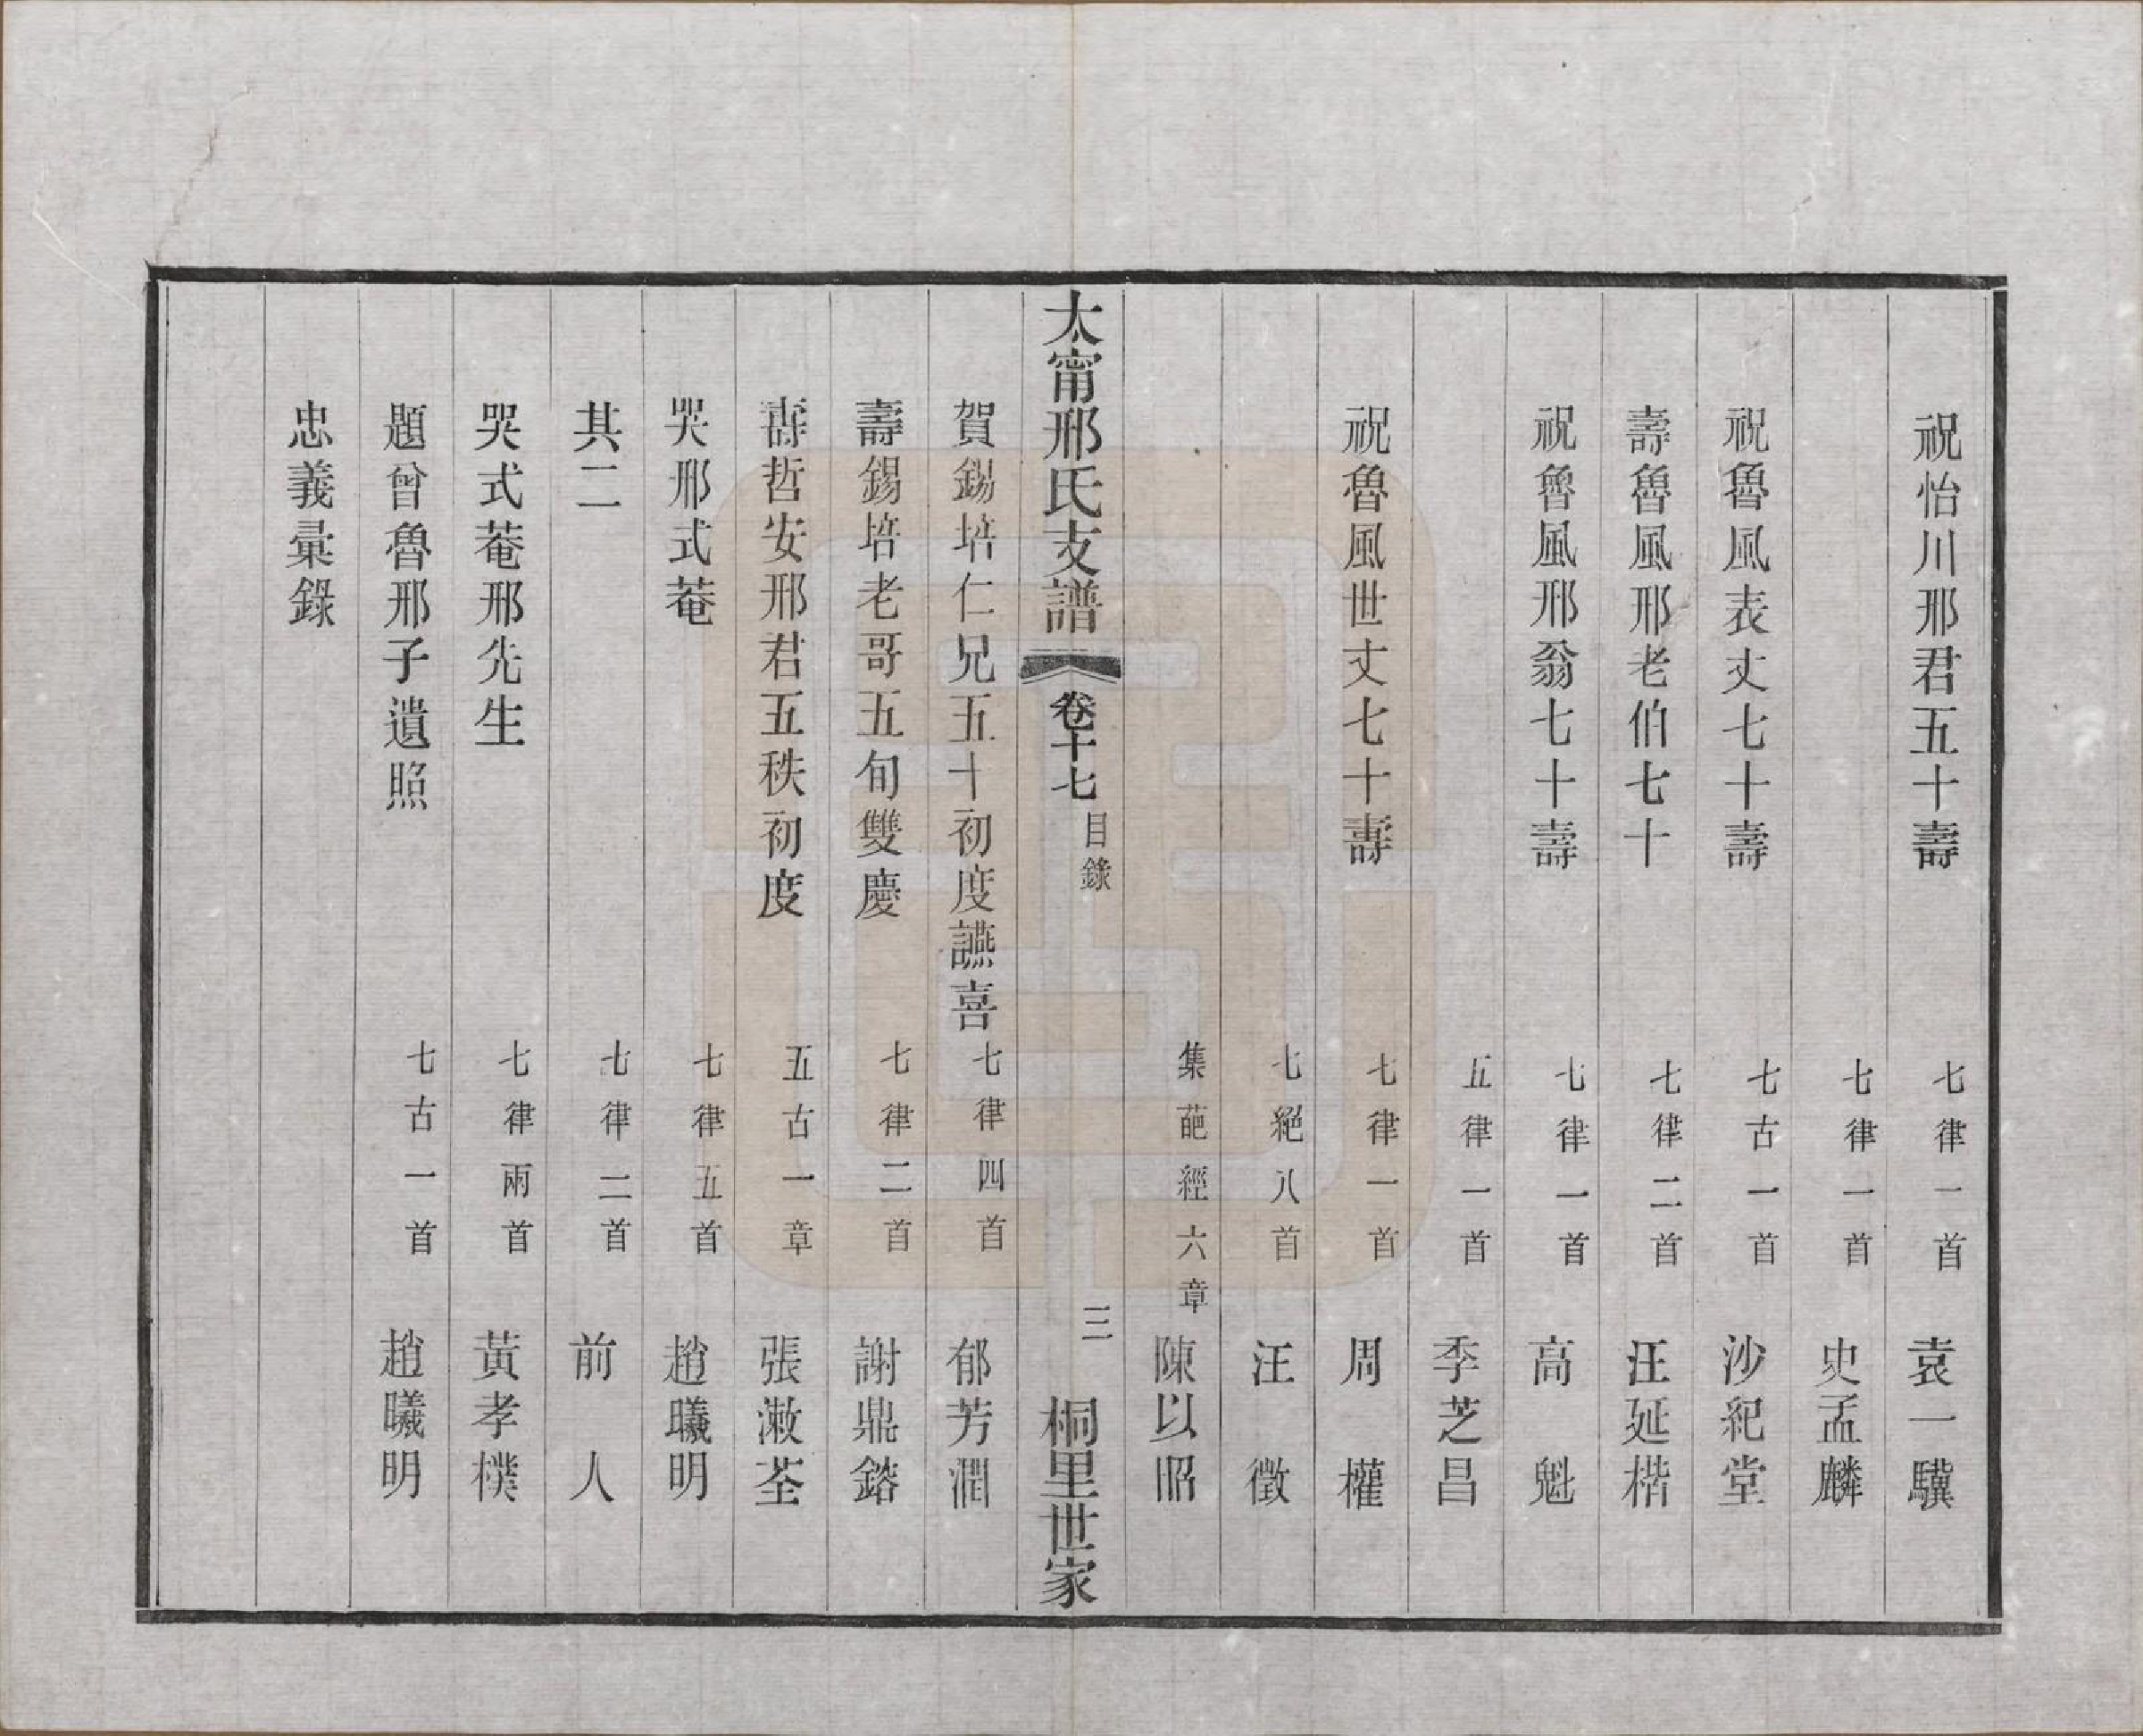 祝怡川邢君五十壽　七律一首　袁一驥
七律一首　史孟麟
祝魯風表丈七十壽　七古一首　沙紀堂
壽魯風邢老伯七十　七律二首　汪延楷
祝魯風邢翁七十壽　七律一首　高魁
五律一首　季芝昌
祝魯風世丈七十壽　七律一首　周權
七絕八首　汪徵
集葩經六章　陳以昭
太甯邢氏支譜　卷十七　目錄　三　桐里世家
賀錫培仁兄五十初度讌喜　七律四首　郁芳潤
壽錫培老哥五旬雙慶　七律二首　謝鼎鎔
壽哲安邢君五秩初度　五古一章　張漱荃
哭邢式菴　七律五首　趙曦明
其二　七律二首　前人
哭式菴邢先生　七律兩首　黃孝樸
題曾魯邢子遺照　七古一首　趙曦明
忠義彙錄